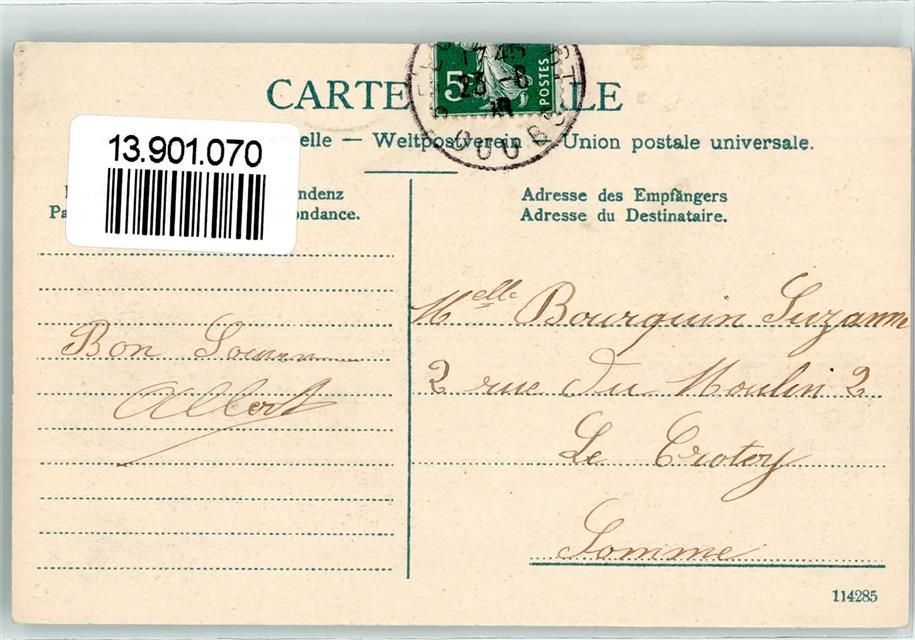 CARTE
LE
5
POSTES
17 45
23 -8
13.901.070
elle — Weltpostverein — Union postale universale.
ndenz
Pa ondance.
Adresse des Empfängers
Adresse du Destinataire.
Bon Souven
Albert
Melle Bourquin Suzanne
2 rue du Moulin 2
Le Crotoy
Somme
114285